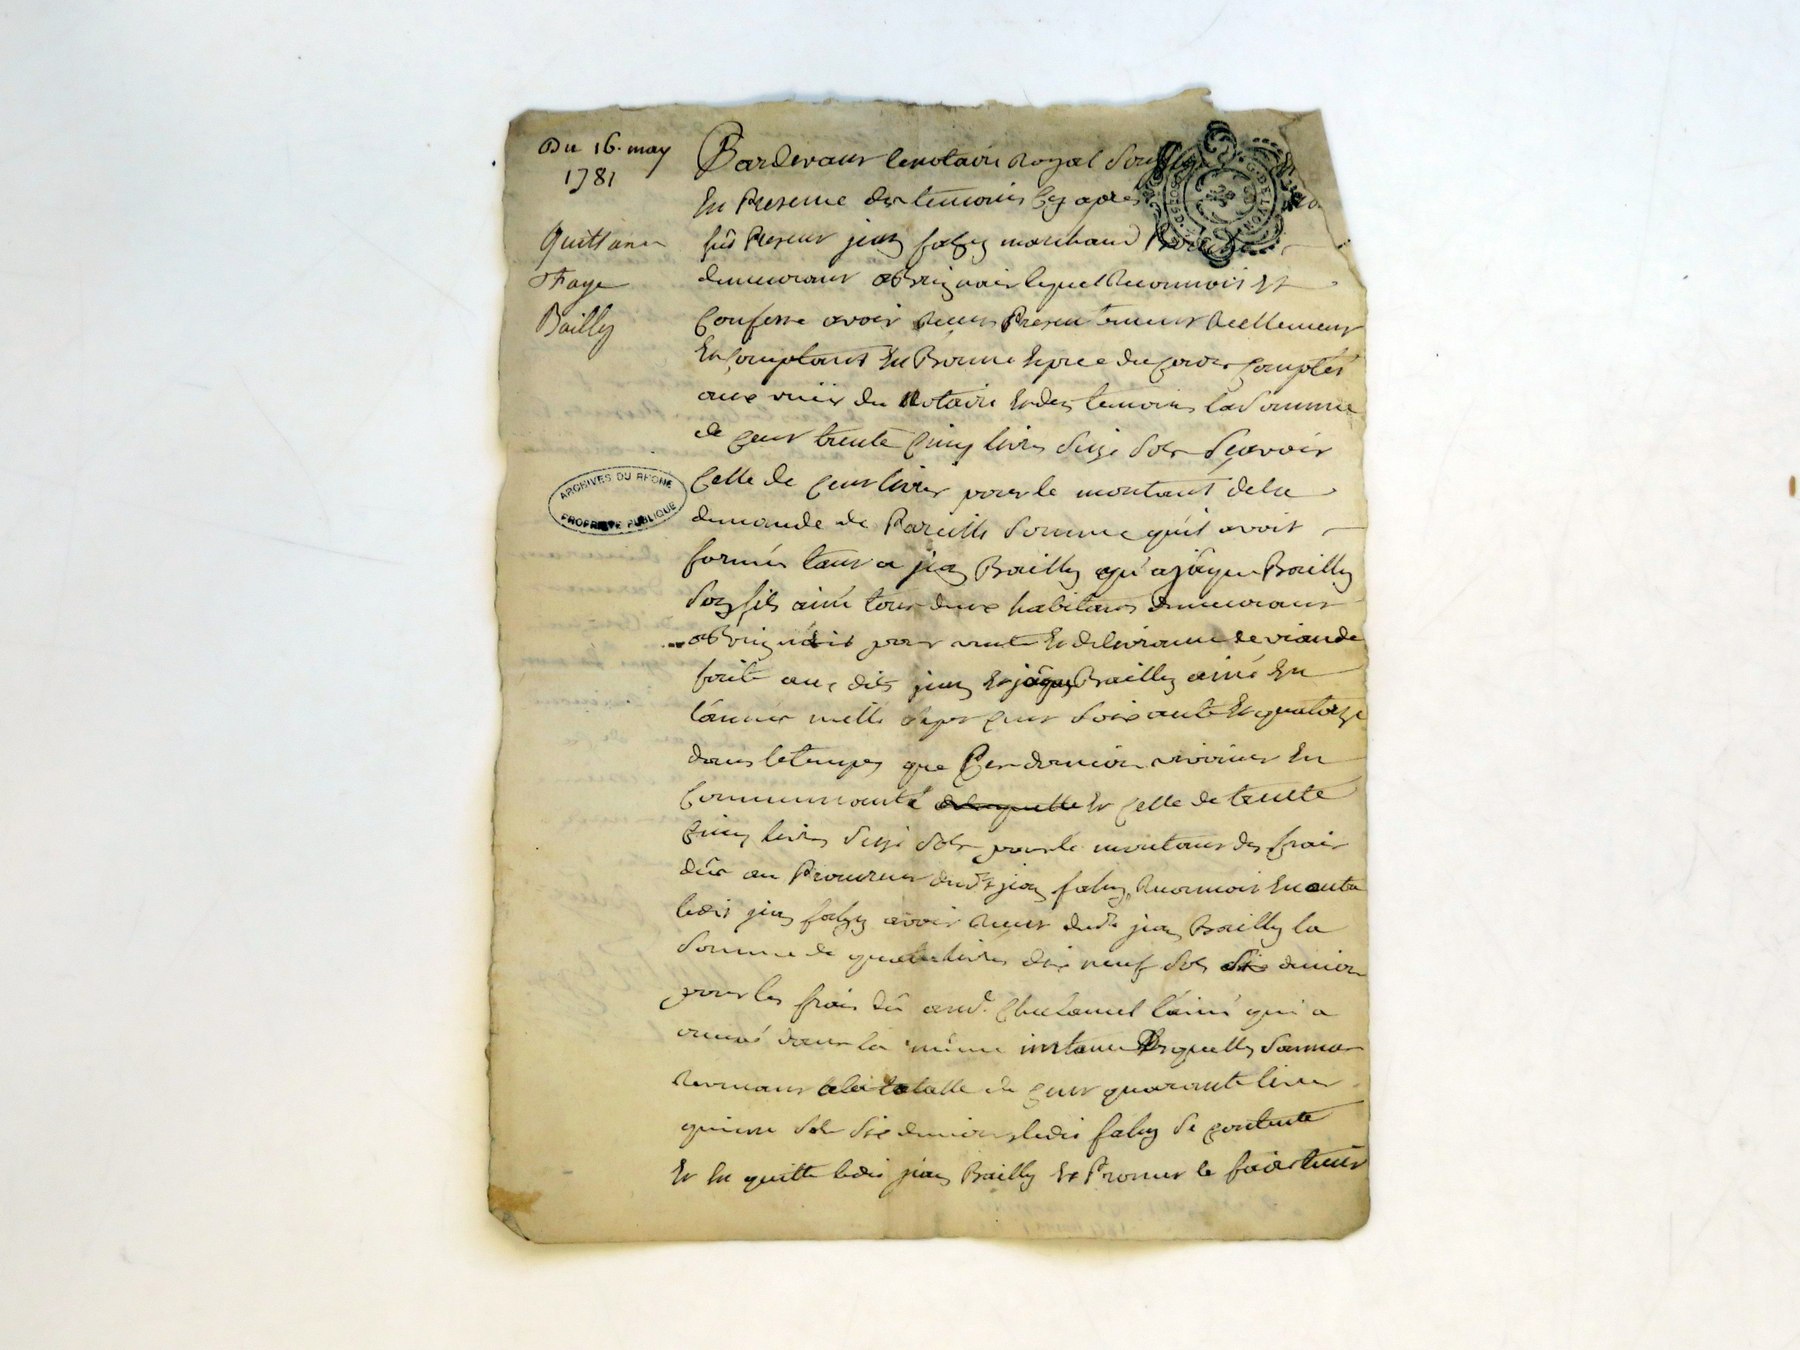 Du 16. may
1781
Quittance
Faye
Bailly
ARCHIVES DU RHONE
PROPRIETE PUBLIQUE
G. DE LYON
Pardevant le notaire Royal Sous
En Presence des temoins cy apres
fut Present jean fahy marchand
demeurant a Brignais lequel Reconnoit Et
Confesse avoir Receu Presentement Reellement
En Comptant En Bonne Espece du cours Comptés
aux vües du Notaire Et des temoins la Somme
de cent trente Cinq livres Seize Sols Scavoir
Celle de Cent livres pour le montant de la
demande de Pareille Somme qu'il avoit
formée tant a jean Bailly qu'a jâque Bailly
Son fils ainé tous deux habitans demeurant
a Brignais pour vente Et delivrance de viande
faite aux dits jean Et jâque Bailly ainé En
l'année mille Sept cent Soixante Et quatorze
dans le temps que Ces dernier vivoient En
Communauté Et Celle de trente
Cinq livres Seize Sols pour le montant des frais
dûs au Procureur dud.t jean fahy, Reconnoit En outre
ledit jean fahy avoir Receu dud.t jean Bailly la
Somme de quatre livres dix neuf Sols Six denier
pour les frais dû aud. l'ainé qui a
dans la même instance Lesquelles Sommes
Revenant a la totalle de cent quarante livres
quinze Sols Six deniers ledit fahy Se Contente
Et En quitte ledit jean Bailly Et Promet le faire tenir